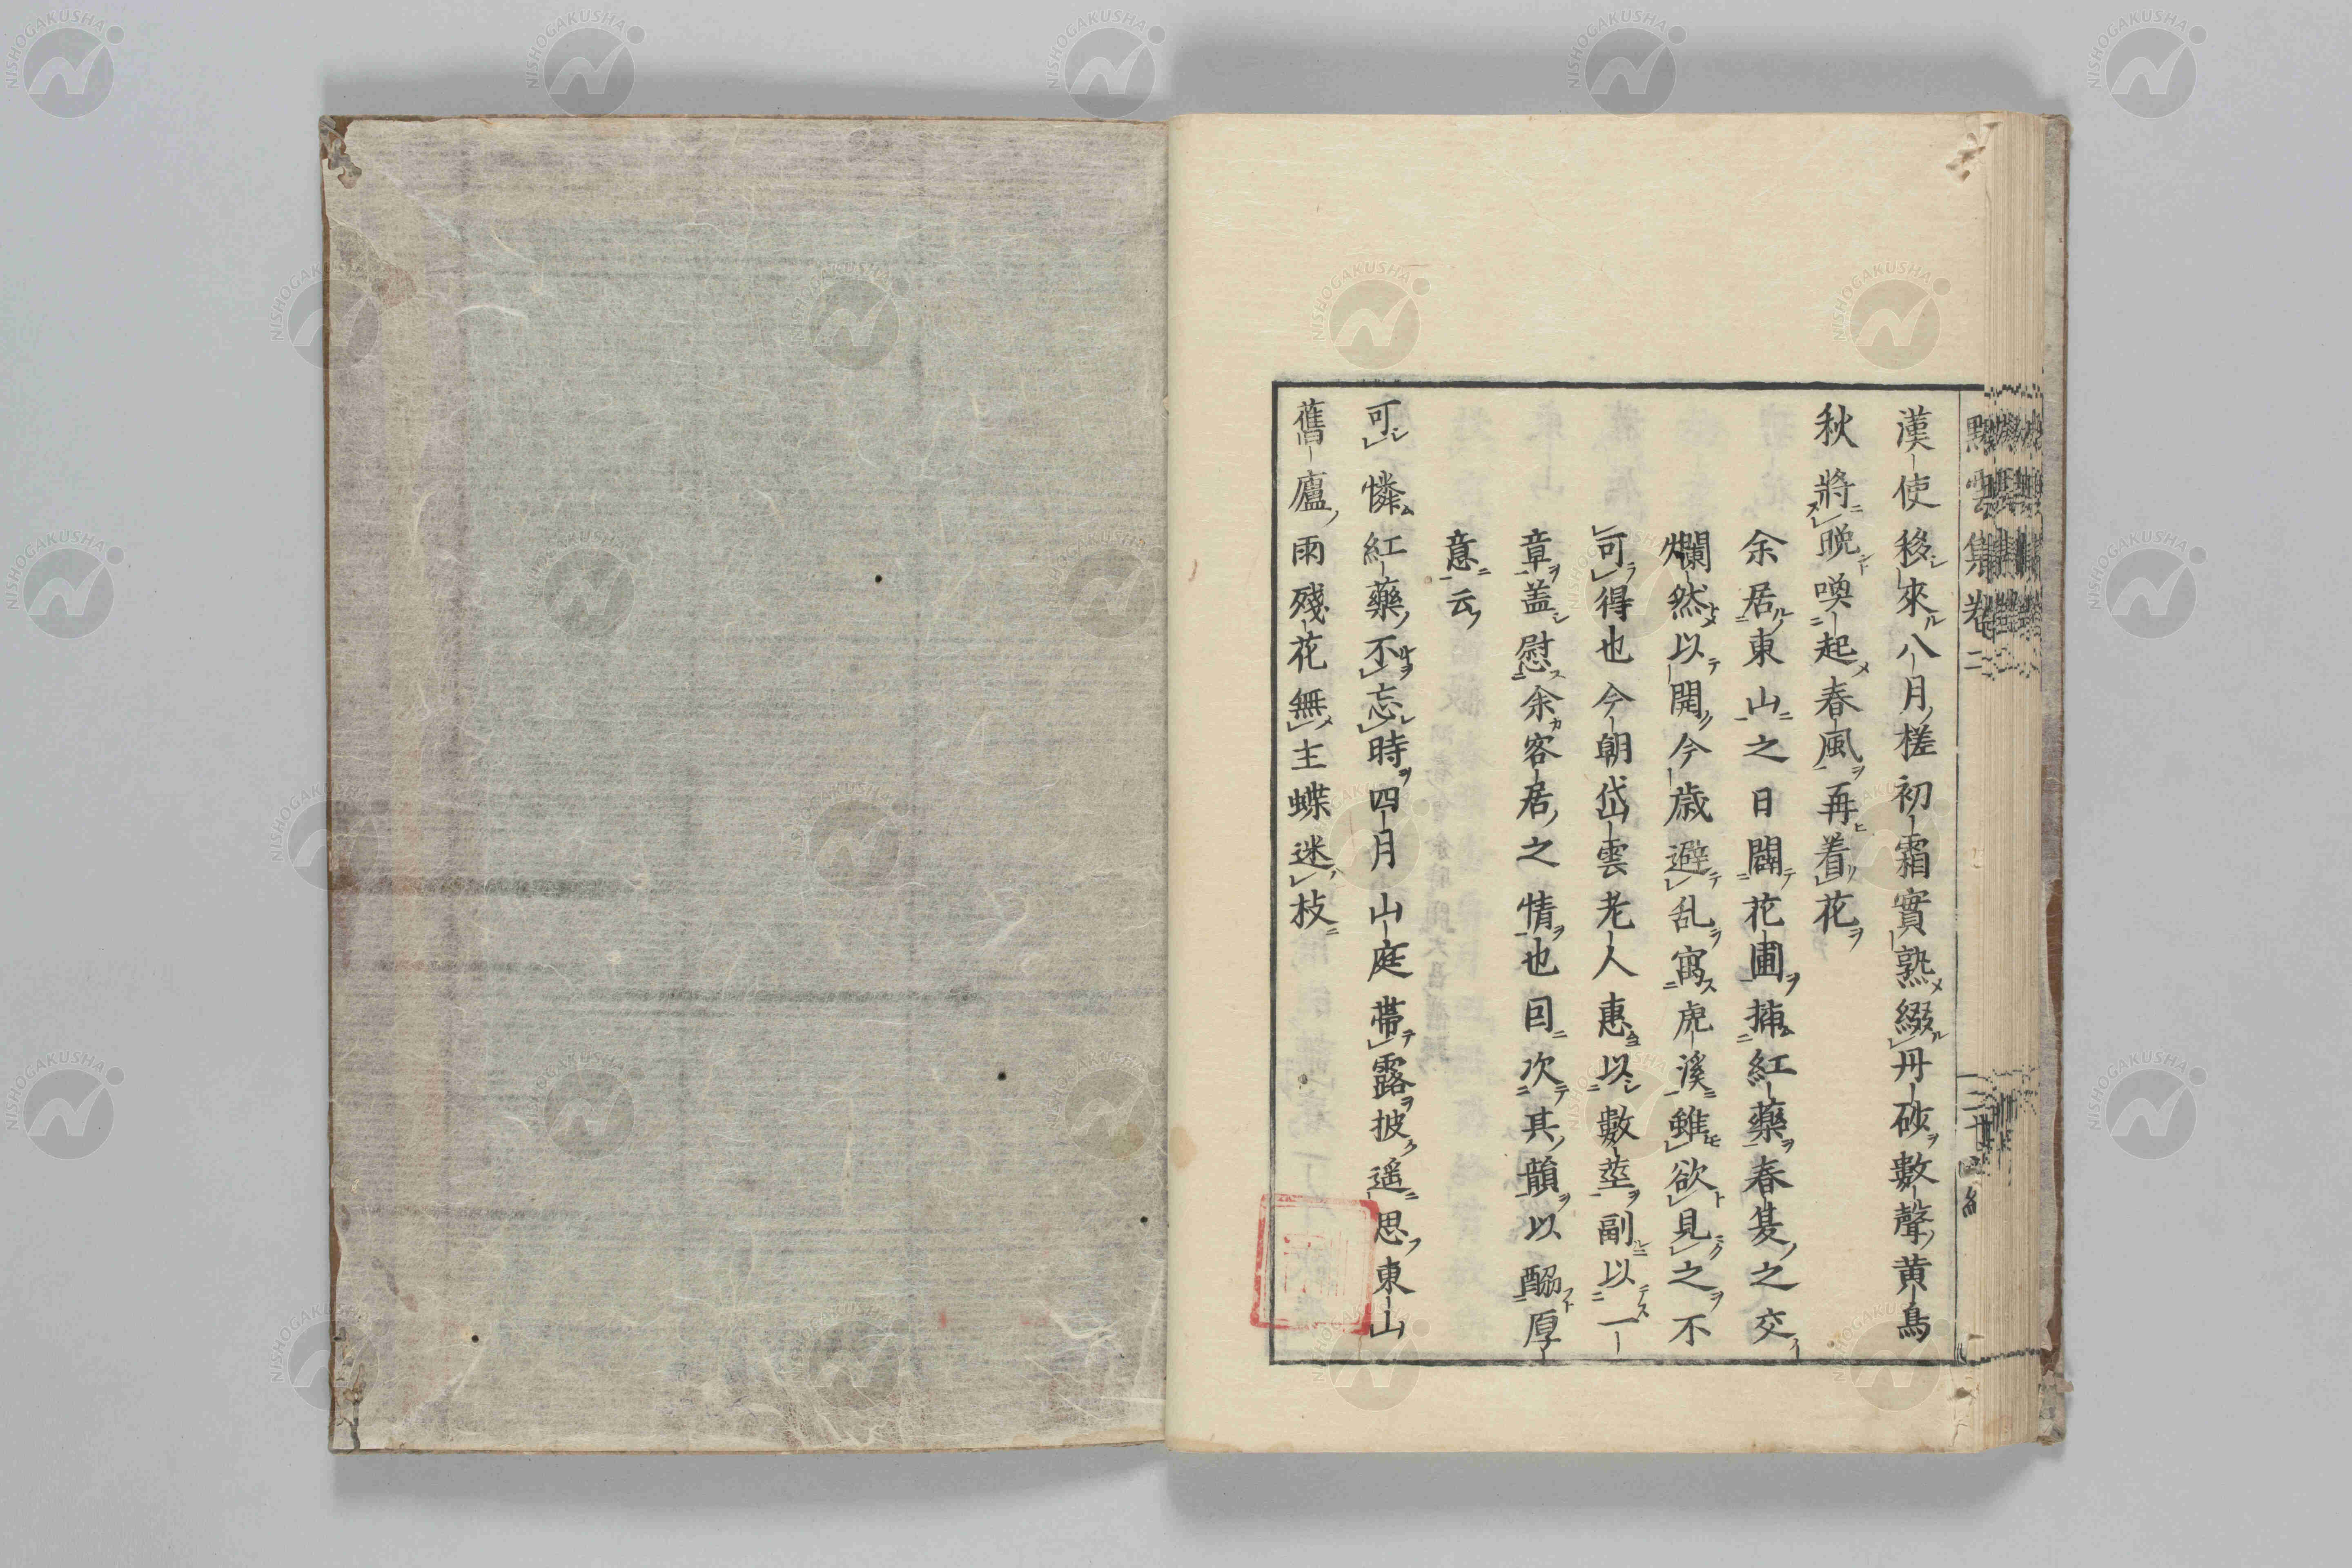 漢使移來八月槎初霜實熟綴丹砂數聲黄鳥
秋將晩喚起春風再着花
余居東山之日闢花圃揷紅藥春夏之交
爛然以開今歳避乱寓虎溪雖欲見之不
可得也今朝岱雲老人惠以數莖副以一
章盖慰余客居之情也囙次其韻以酬厚
意云
可憐紅藥不忘時四月山庭帶露披遥思東山
舊廬雨殘花無主蝶迷枝
集卷二
NISHOGAKUSHA